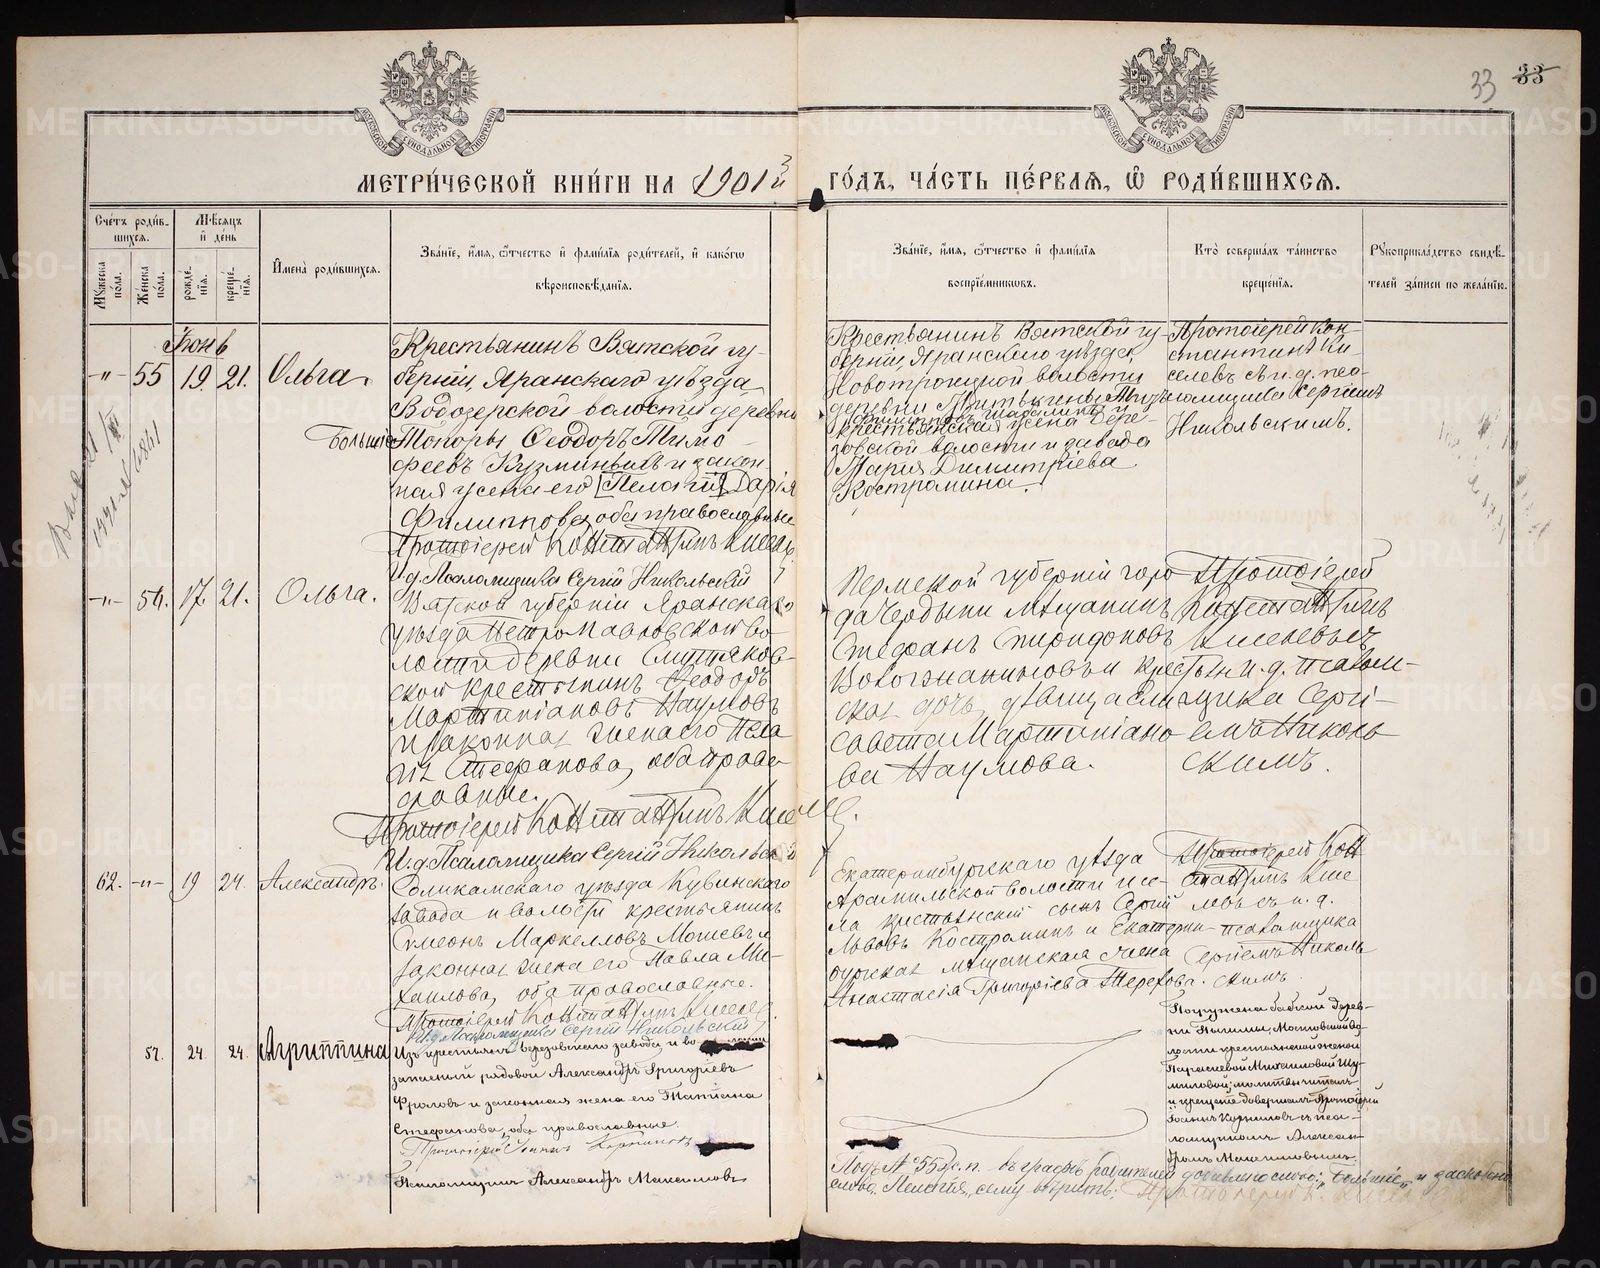 33 33
МЕТРИ́ЧЕСКОЙ КНИ́ГИ НА 1901й ГО́ДЪ, ЧА́СТЬ ПЕ́РВАѦ, Ѽ РОДИ́ВШИХСѦ.
Сче́тъ роди́в-
шихся.
Му́жеска по́ла.
Же́нска по́ла.
Мѣсяцъ
и де́нь
рожде́-
нїя.
креще́-
нїя.
И҆мена̀ роди́вшихся.
Зва́нїе, и҆́мя, ѻ҆́тчество и҆ фами́лїя роди́телей, и҆ како́гѡ
вѣроисповѣ́данїя.
Зва́нїе, и҆́мя, ѻ҆́тчество и҆ фами́лїя
воспрїе́мникѡвъ.
Кто̀ соверша́лъ та́инство
креще́нїя.
Рꙋкоприкла́дство свидѣ́-
телей за́писи по жела́нїю.
Іюнь
-"- 55 19. 21. Ольга.
Крестьянинъ Вятской гу-
берніи, Яранскаго уѣзда
Водозерской волости деревни
Большіе Топоры Ѳеодоръ Тимо-
феевъ Кузминыхъ и закон-
ная жена его [Пелагія] Дарія
Филиппова, оба православные
Протоіерей Константинъ Киселевъ
И. д. Псаломщика Сергій Никольскій
Крестьянинъ Вятской гу-
берніи, Яранскаго уѣзда,
Новотроицкой волости
деревни
крестьянская жена Бере-
зовской волости и завода
Марія Димитріева
Костромина.
Протоіерей Кон-
стантинъ Ки-
селевъ съ и. д. пса-
ломщика Сергіемъ
Никольскимъ.
-"- 56. 17. 21. Ольга.
Вятской губерніи Яранскаго
уѣзда Петропавловской во-
лости деревни
ской крестьянинъ Ѳеодоръ
Мартиніановъ Наумовъ
и законная жена его Пела-
гія Стефанова, оба право-
славные.
Протоіерей Константинъ Киселевъ.
И. д. Псаломщика Сергій Никольскій
Пермской губерніи горо-
да Чердыни мѣщанинъ
Стефанъ Спиридоновъ
и крестьян-
ская дочь, дѣвица Ели-
савета Мартиніано-
ва Наумова.
Протоіерей
Константинъ
Киселевъ съ
и. д. псалом-
щика Сергі-
емъ Николь-
скимъ.
62. -"- 19 24. Александръ.
Соликамскаго уѣзда Кувинскаго
завода и волости крестьянинъ
Симеонъ Маркелловъ Мошевъ и
законная жена его Павла Ми-
хаилова, оба православные.
Протоіерей Константинъ Киселевъ.
И. д. Псаломщика Сергій Никольскій
Екатеринбургскаго уѣзда
Арамильской волости и се-
ла крестьянскій сынъ Сергій
Львовъ Костроминъ и Екатерин-
бургская мѣщанская жена
Анастасія Григоріева Терехова.
Протоіерей Кон-
стантинъ Кисе-
левъ съ и. д.
псаломщика
Сергіемъ Николь-
скимъ.
57. 24. 24. Агриппина
Изъ крестьянъ Березовскаго завода и волости
запасный рядовой Александръ Григоріевъ
Фроловъ и законная жена его Татіана
Стефанова, оба православные.
Протоіерей Іоаннъ Корниловъ
Псаломщикъ Александръ Максимовъ
Погружена бабкой дерев-
ни Пышмы, Мостовской во-
лости крестьянской женой
Параскевой Михаиловой Шу-
миловой; молитвы читалъ
и крещеніе довершалъ Протоіерей
Іоаннъ Корниловъ съ пса-
ломщикомъ Алексан-
дромъ Максимовымъ.
Подъ № 55 ж. п. въ графѣ родителей добавлено слово: „Большіе" и заскоблено
слово Пелагія, сему вѣрить: Протоіерей К. Киселевъ